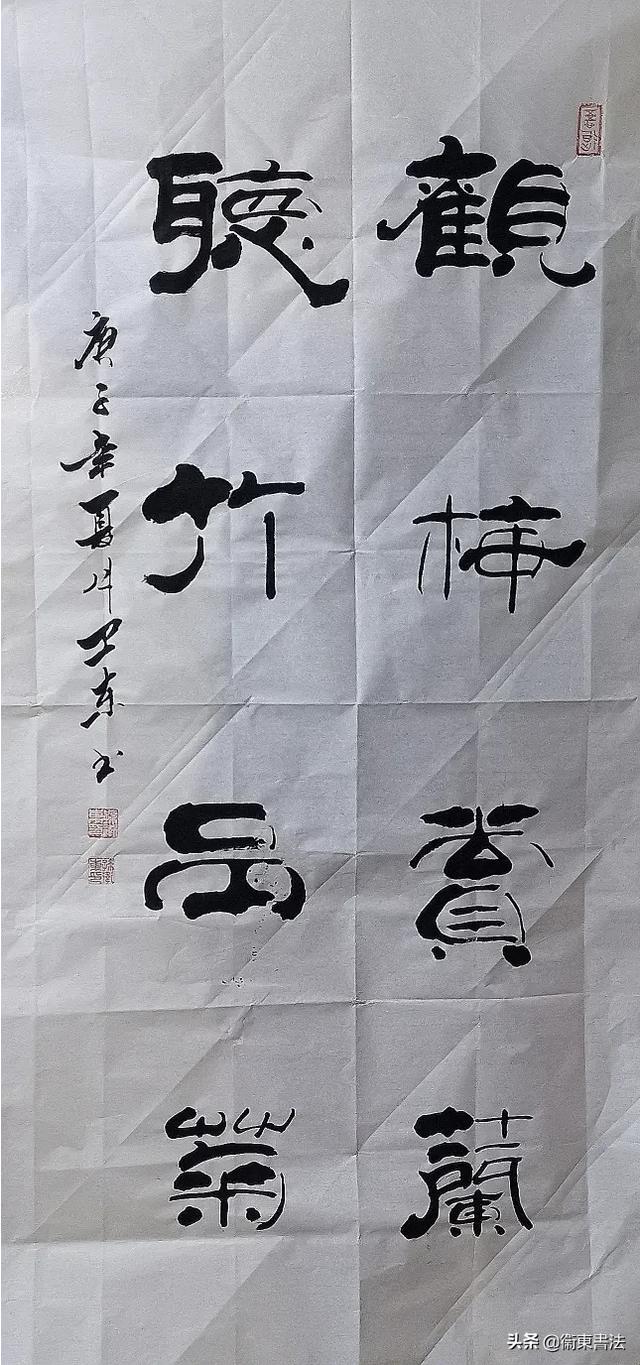 觀梅賞蘭
聽竹品菊
庚子年夏月卫东书
头条 @衛東書法